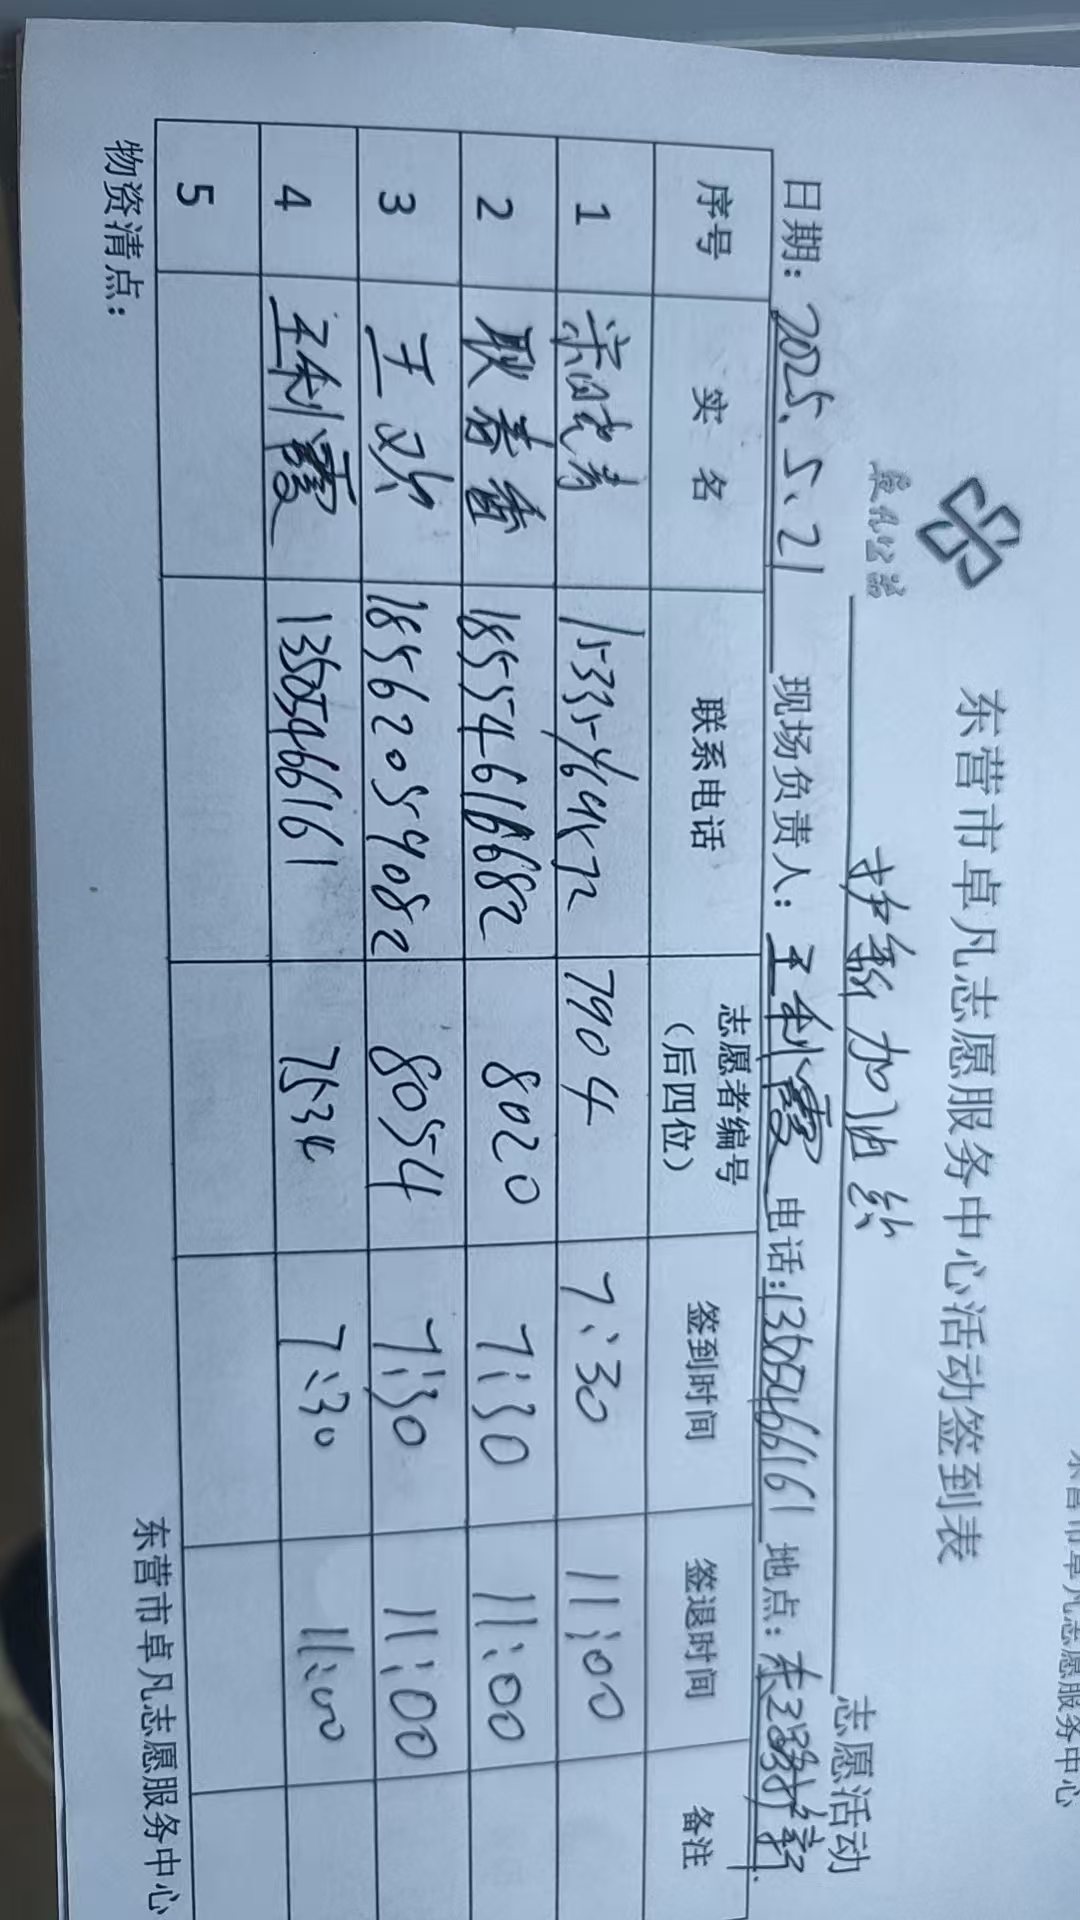 东营市卓凡志愿服务中心
卓凡公益
东营市卓凡志愿服务中心活动签到表
护航加油站 志愿活动
日期：2025.5.21 现场负责人：王利霞 电话:13605466161 地点：东
序号 实名 联系电话 志愿者编号（后四位） 签到时间 签退时间 备注
1 7904 7:30 11:00
2 耿春香 18554616682 8020 7:30 11:00
3 王欢 18562059082 8054 7:30 11:00
4 王利霞 13605466161 7534 7:30 11:00
5
物资清点：
东营市卓凡志愿服务中心